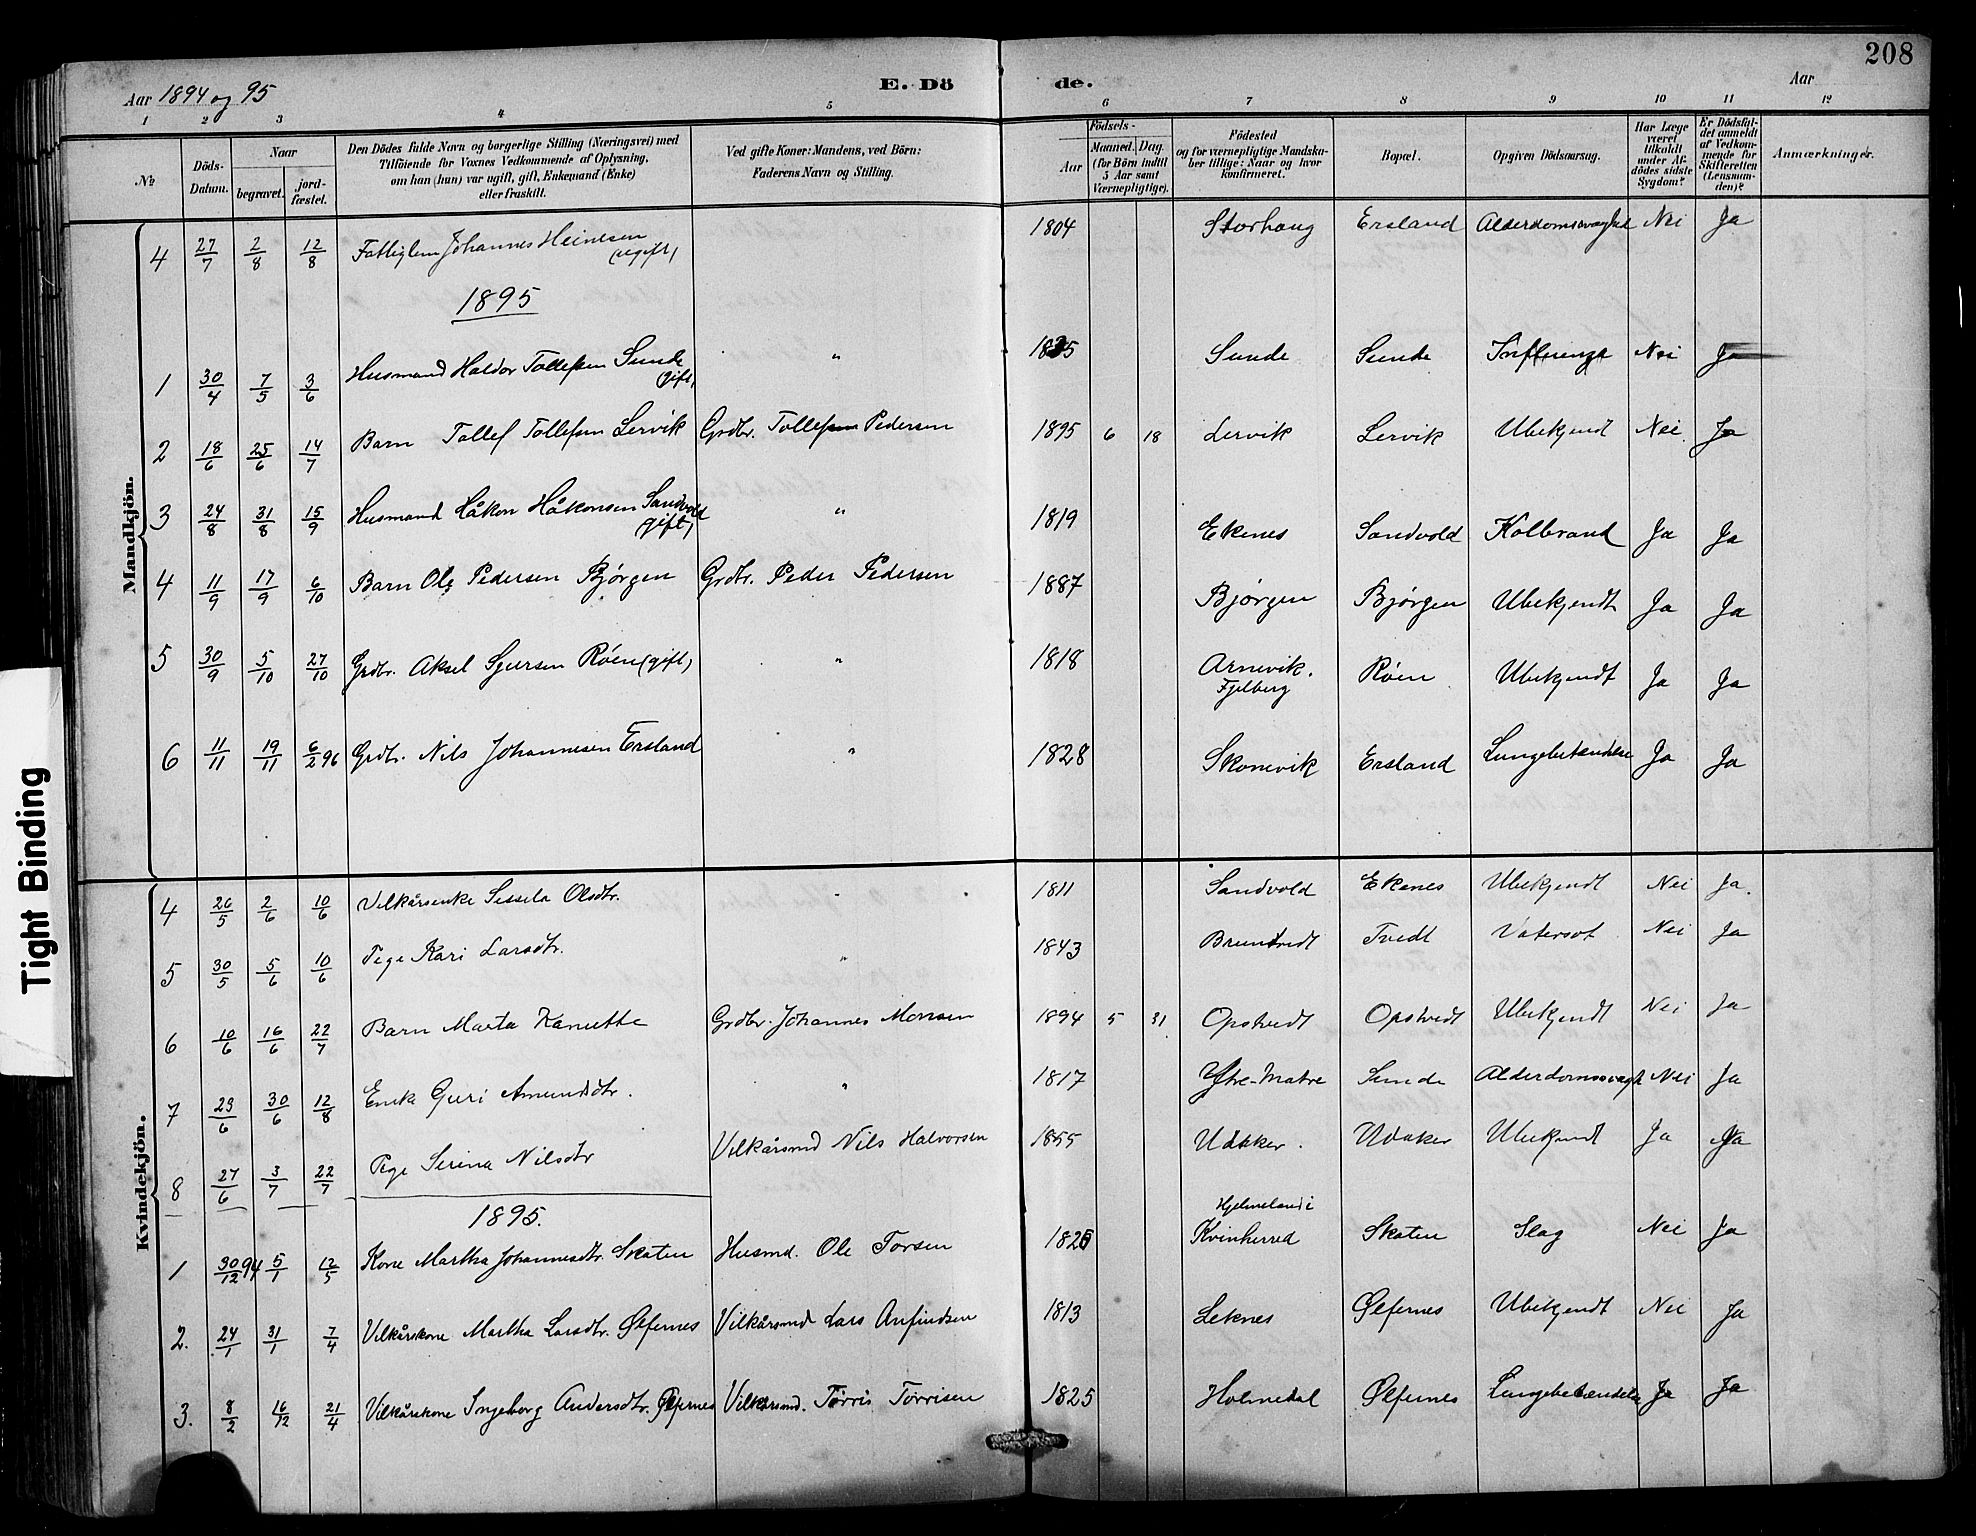 208
Aar 1894 og 95 E. Dö de. Aar
1 2 3 4 5 6 7 8 9 10 11 12
№
Döds-Datum.
Naar
begravet.
jord-fæstet.
Den Dödes fulde Navn og borgerlige Stilling (Næringsvei) med
Tilföiende for Voxnes Vedkommende af Oplysning,
om han (hun) var ugift, gift, Enkemand (Enke)
eller fraskilt.
Ved gifte Koner: Mandens, ved Börn:
Faderens Navn og Stilling.
Födsels-
Aar
Maaned. Dag.
(for Börn indtil
5 Aar samt
Værnepligtige).
Födested
og for værnepligtige Mandska-
ber tillige: Naar og hvor
konfirmeret.
Bopæl.
Opgiven Dödsaarsag.
Har Læge
været
tilkaldt
under Af-
dödes sidste
Sygdom?
Er Dödsfal-
det anmeldt
af Vedkom-
mende for
Skifteretten
(Lensman-
den)?
Anmærkninger.
Mandkjön.
4 27/7 2/8 12/8 Fattiglem Johannes Heinesen (ugift) 1804 Storhaug Ersland Alderdomssvaghed Nei Ja
1895
1 30/4 7/5 3/6 Husmand Haldor Tollefsen Sunde (gift) " 1835 Sunde Sunde Influenza Nei Ja
2 18/6 25/6 14/7 Barn Tollef Tollefsen Lervik Grdbr. Tollef Pedersen 1895 6 18 Lervik Lervik Ubekjendt Nei. Ja
3 24/8 31/8 15/9 Husmand Håkon Håkonsen Sandvold (gift) " 1819 Ekenes Sandvold Kolbrand Ja Ja
4 11/9 17/9 6/10 Barn Ole Pedersen Bjørgen Grdbr. Peder Pedersen 1887 Bjørgen Bjørgen Ubekjendt Ja Ja
5 30/9 5/10 27/10 Grdbr. Aksel Sjursen Røen (gift) " 1818 Arnevik. Fjelberg Røen Ubekjendt Ja Ja
6 11/11 19/11 6/2 96 Grdbr. Nils Johannesen Ersland " 1828 Skonevik Ersland Lungebetændelse Ja Ja
Kvindekjön.
4 26/5 2/6 10/6 Vilkårsenke Sissela Olsdtr. " 1811 Sandvold Ekenes Ubekjendt Nei Ja.
5 30/5 5/6 10/6 Pige Kari Larsdtr. " 1843 Bruntvedt Tvedt Vatersot Nei Ja
6 10/6 16/6 22/7 Barn Marta Grdbr. Johannes Monsen 1894 5 31 Opstvedt Opstvedt Ubekjendt Nei Ja
7 23/6 30/6 12/8 Enke Guri Amundsdtr. " 1817 Ytre-Matre Sunde Nei Ja
8 27/6 3/7 22/7 Pige Serina Nilsdtr Vilkårsmd Nils Halvorsen 1855 Udaker. Udaker Ubekjendt Ja Ja
1895.
1 30/12 94 5/1 12/5 Kone Martha Johannesdtr. Skaten Husmd. Ole Torsen 1826 Hjelmeland i Kvinherred Skaten Slag Nei Ja
2. 24/1 31/1 7/4 Vilkårskone Martha Larsdtr. Ølfernes Vilkårsmd Lars Anfindsen 1813 Leknes Ølfernes Ubekjendt Nei Ja
3. 8/2 16/12 21/4 Vilkårskone Ingeborg Andersdtr. Ølfernes Vilkårsmd. Tørris Tørrisen 1825 Holmedal Ølfernes Lungebetændelse Ja Ja
Tight Binding